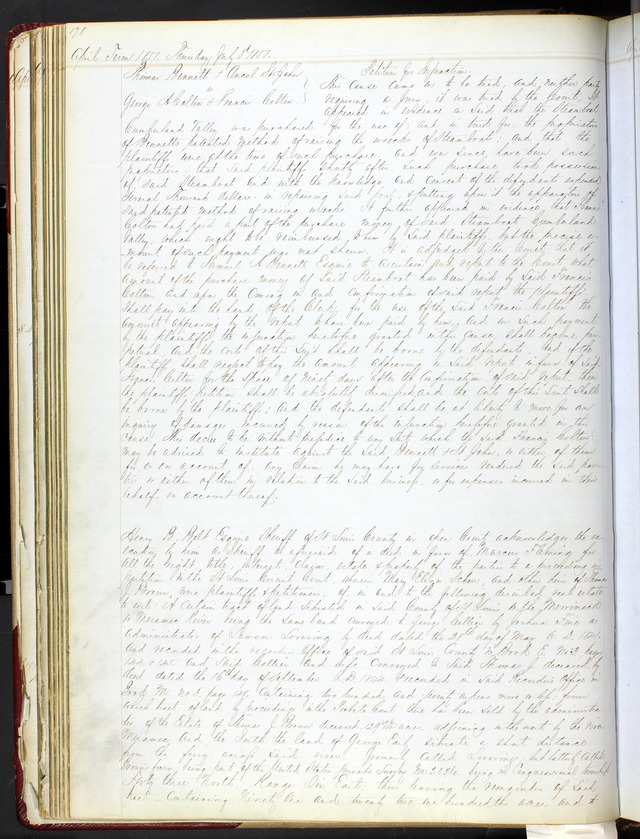 April Term 1851. Thursday July 3d 1851.
Thomas Bennett &
Petition for Injunction
George A Colton & Francis Colton
This cause came on to be tried, and neither party
requiring a jury, it was tried by the Court. It
appeared in evidence that the Steamboat
Cumberland Valley was purchased for the use of, and in trust for, the proprietors
of Bennetts patented method of raising the wrecks of Steamboats: And that the
plaintiffs were, at the time of such purchase, and ever since have been such
proprietors: that said plaintiffs shortly after such purchase took possession
of said Steamboat and with the knowledge and consent of the defendants expended
several thousand dollars in repairing said boat, & putting upon it the apparatus of
said patented method of raising wrecks. It further appeared in evidence that Francis
Colton had paid a part of the purchase money of said Steamboat Cumberland
Valley which ought to be reimbursed him by said plaintiffs, but the precise a-
mount of such payment was not shown. It is adjudged by the Court that it
be referred to Samuel A Bennett Esquire to ascertain and report to the Court what
amount of the purchase money of said Steamboat has been paid by said Francis
Colton, and upon the coming in and confirmation of said report the plaintiffs
shall pay into the hands of the Clerk for the use of the said Francis Colton the
amount appearing by the report to have been paid by him, and on such payment
by the plaintiffs the injunction heretofore granted in this cause, shall become per-
petual And the costs of this suit shall be borne by the defendants. And if the
plaintiffs shall neglect to pay the amount appearing in said report in favor of said
Francis Colton for the space of Ninety days after the confirmation of said report, then
the plaintiffs petition shall be absolutely dismissed, and the costs of this suit shall
be borne by the plaintiffs; And the defendants shall be at liberty to move for an
inquiry of damages incurred by reason of the injunction heretofore granted in this
cause. This decree to be without prejudice to any suit which the said Francis Colton
may be advised to institute against the said Bennett & St John, or either of them
for or on account of, any claim he may have for services rendered the said par-
ties or either of them in relation to the said business, or for expenses incurred in their
behalf or on account thereof.
Henry B. Belt Esquire Sheriff of St Louis County in open Court acknowledges the ex-
ecution by him as Sheriff as aforesaid of a deed in favor of Marcus Fleming for
all the right, title, interest, Claim, estate & property of the parties to a proceeding in
partition in the St Louis Circuit Court wherein Mary and other heirs of Thomas
J Brown were plaintiffs & petitioners, of in and to the following described real estate
to wit: A Certain tract of land Situated in said County of St Louis
or Meramec River being the same land conveyed to George Collier by
Administrator of by deed dated the 25th day of May A. D.
And recorded in the recorders Office of said St Louis County in Book No 2 page
and said Collier and wife Conveyed to said Thomas J deceased by
deed dated the 16th day of September A. D. & recorded in said Recorders Office in
Book No 2 page Containing two hundred and acres more or less, from
which tract of land by proceedings in the Probate Court there has been sold by the administra-
tor of the Estate of Thomas J Brown deceased acres adjoining on the west by the River
Meramec and the South the land of George situate a short distance
from the ferry across said river formerly called
ferry being part of the United States private Survey No in Congressional township
forty three North Range East, then leaving the remainder of said
tract Containing Ninety and one hundredths acres and